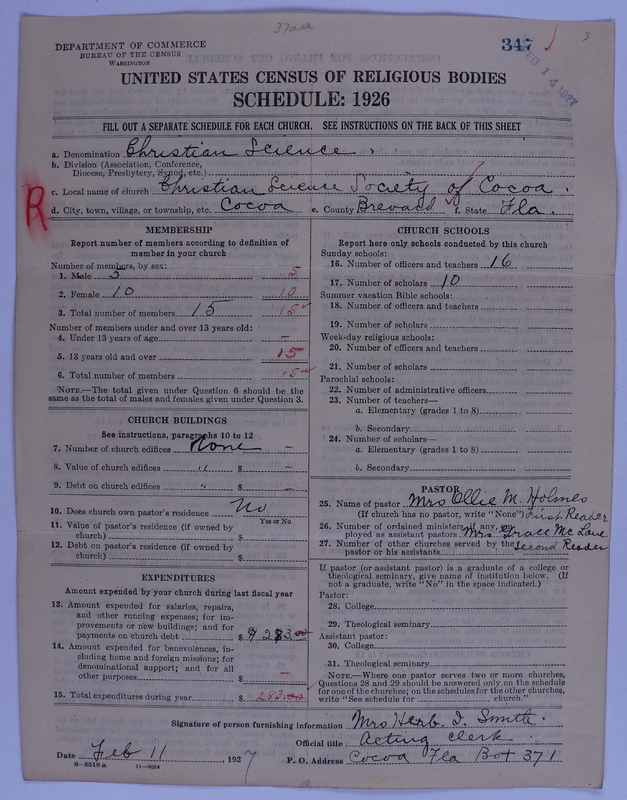 37acc
DEPARTMENT OF COMMERCE
BUREAU OF THE CENSUS
WASHINGTON
347
3
FEB 14 1927
UNITED STATES CENSUS OF RELIGIOUS BODIES
SCHEDULE: 1926
FILL OUT A SEPARATE SCHEDULE FOR EACH CHURCH. SEE INSTRUCTIONS ON THE BACK OF THIS SHEET
a. Denomination Christian Science.
b. Division (Association, Conference,
Diocese, Presbytery, Synod, etc.)
c. Local name of church Christian Science Society of Cocoa.
R
d. City, town, village, or township, etc. Cocoa e. County Brevard f. State Fla.
MEMBERSHIP
Report number of members according to definition of
member in your church
Number of members, by sex:
1. Male 5 5
2. Female 10 10
3. Total number of members 15 15
Number of members under and over 13 years old:
4. Under 13 years of age –
5. 13 years old and over 15
6. Total number of members 15
NOTE.—The total given under Question 6 should be the
same as the total of males and females given under Question 3.
CHURCH BUILDINGS
See instructions, paragraphs 10 to 12
7. Number of church edifices None –
8. Value of church edifices " $ –
9. Debt on church edifices " $ –
10. Does church own pastor's residence No
Yes or No
11. Value of pastor's residence (if owned by
church) $
12. Debt on pastor's residence (if owned by
church) $
EXPENDITURES
Amount expended by your church during last fiscal year
13. Amount expended for salaries, repairs,
and other running expenses; for im-
provements or new buildings; and for
payments on church debt $ 283.00
14. Amount expended for benevolences, in-
cluding home and foreign missions; for
denominational support; and for all
other purposes $ –
15. Total expenditures during year $ 283.00
CHURCH SCHOOLS
Report here only schools conducted by this church
Sunday schools:
16. Number of officers and teachers 16
17. Number of scholars 10
Summer vacation Bible schools:
18. Number of officers and teachers
19. Number of scholars
Week-day religious schools:
20. Number of officers and teachers
21. Number of scholars
Parochial schools:
22. Number of administrative officers
23. Number of teachers—
a. Elementary (grades 1 to 8)
b. Secondary
24. Number of scholars—
a. Elementary (grades 1 to 8)
b. Secondary
PASTOR
25. Name of pastor Mrs Ollie M. Holmes
(If church has no pastor, write "None") First Reader
26. Number of ordained ministers, if any,
ployed as assistant pastors Mrs Grace McLane
27. Number of other churches served by the Second Reader
pastor or his assistants
If pastor (or assistant pastor) is a graduate of a college or
theological seminary, give name of institution below. (If
not a graduate, write "No" in the space indicated.)
Pastor:
28. College
29. Theological seminary
Assistant pastor:
30. College
31. Theological seminary
NOTE.—Where one pastor serves two or more churches,
Questions 28 and 29 should be answered only on the schedule
for one of the churches; on the schedules for the other churches,
write "See schedule for church."
Signature of person furnishing information Mrs Herb. I. Smith.
Official title Acting Clerk
Date Feb 11 1927
P. O. Address Cocoa Fla Box 371
8—5518a 11—9054